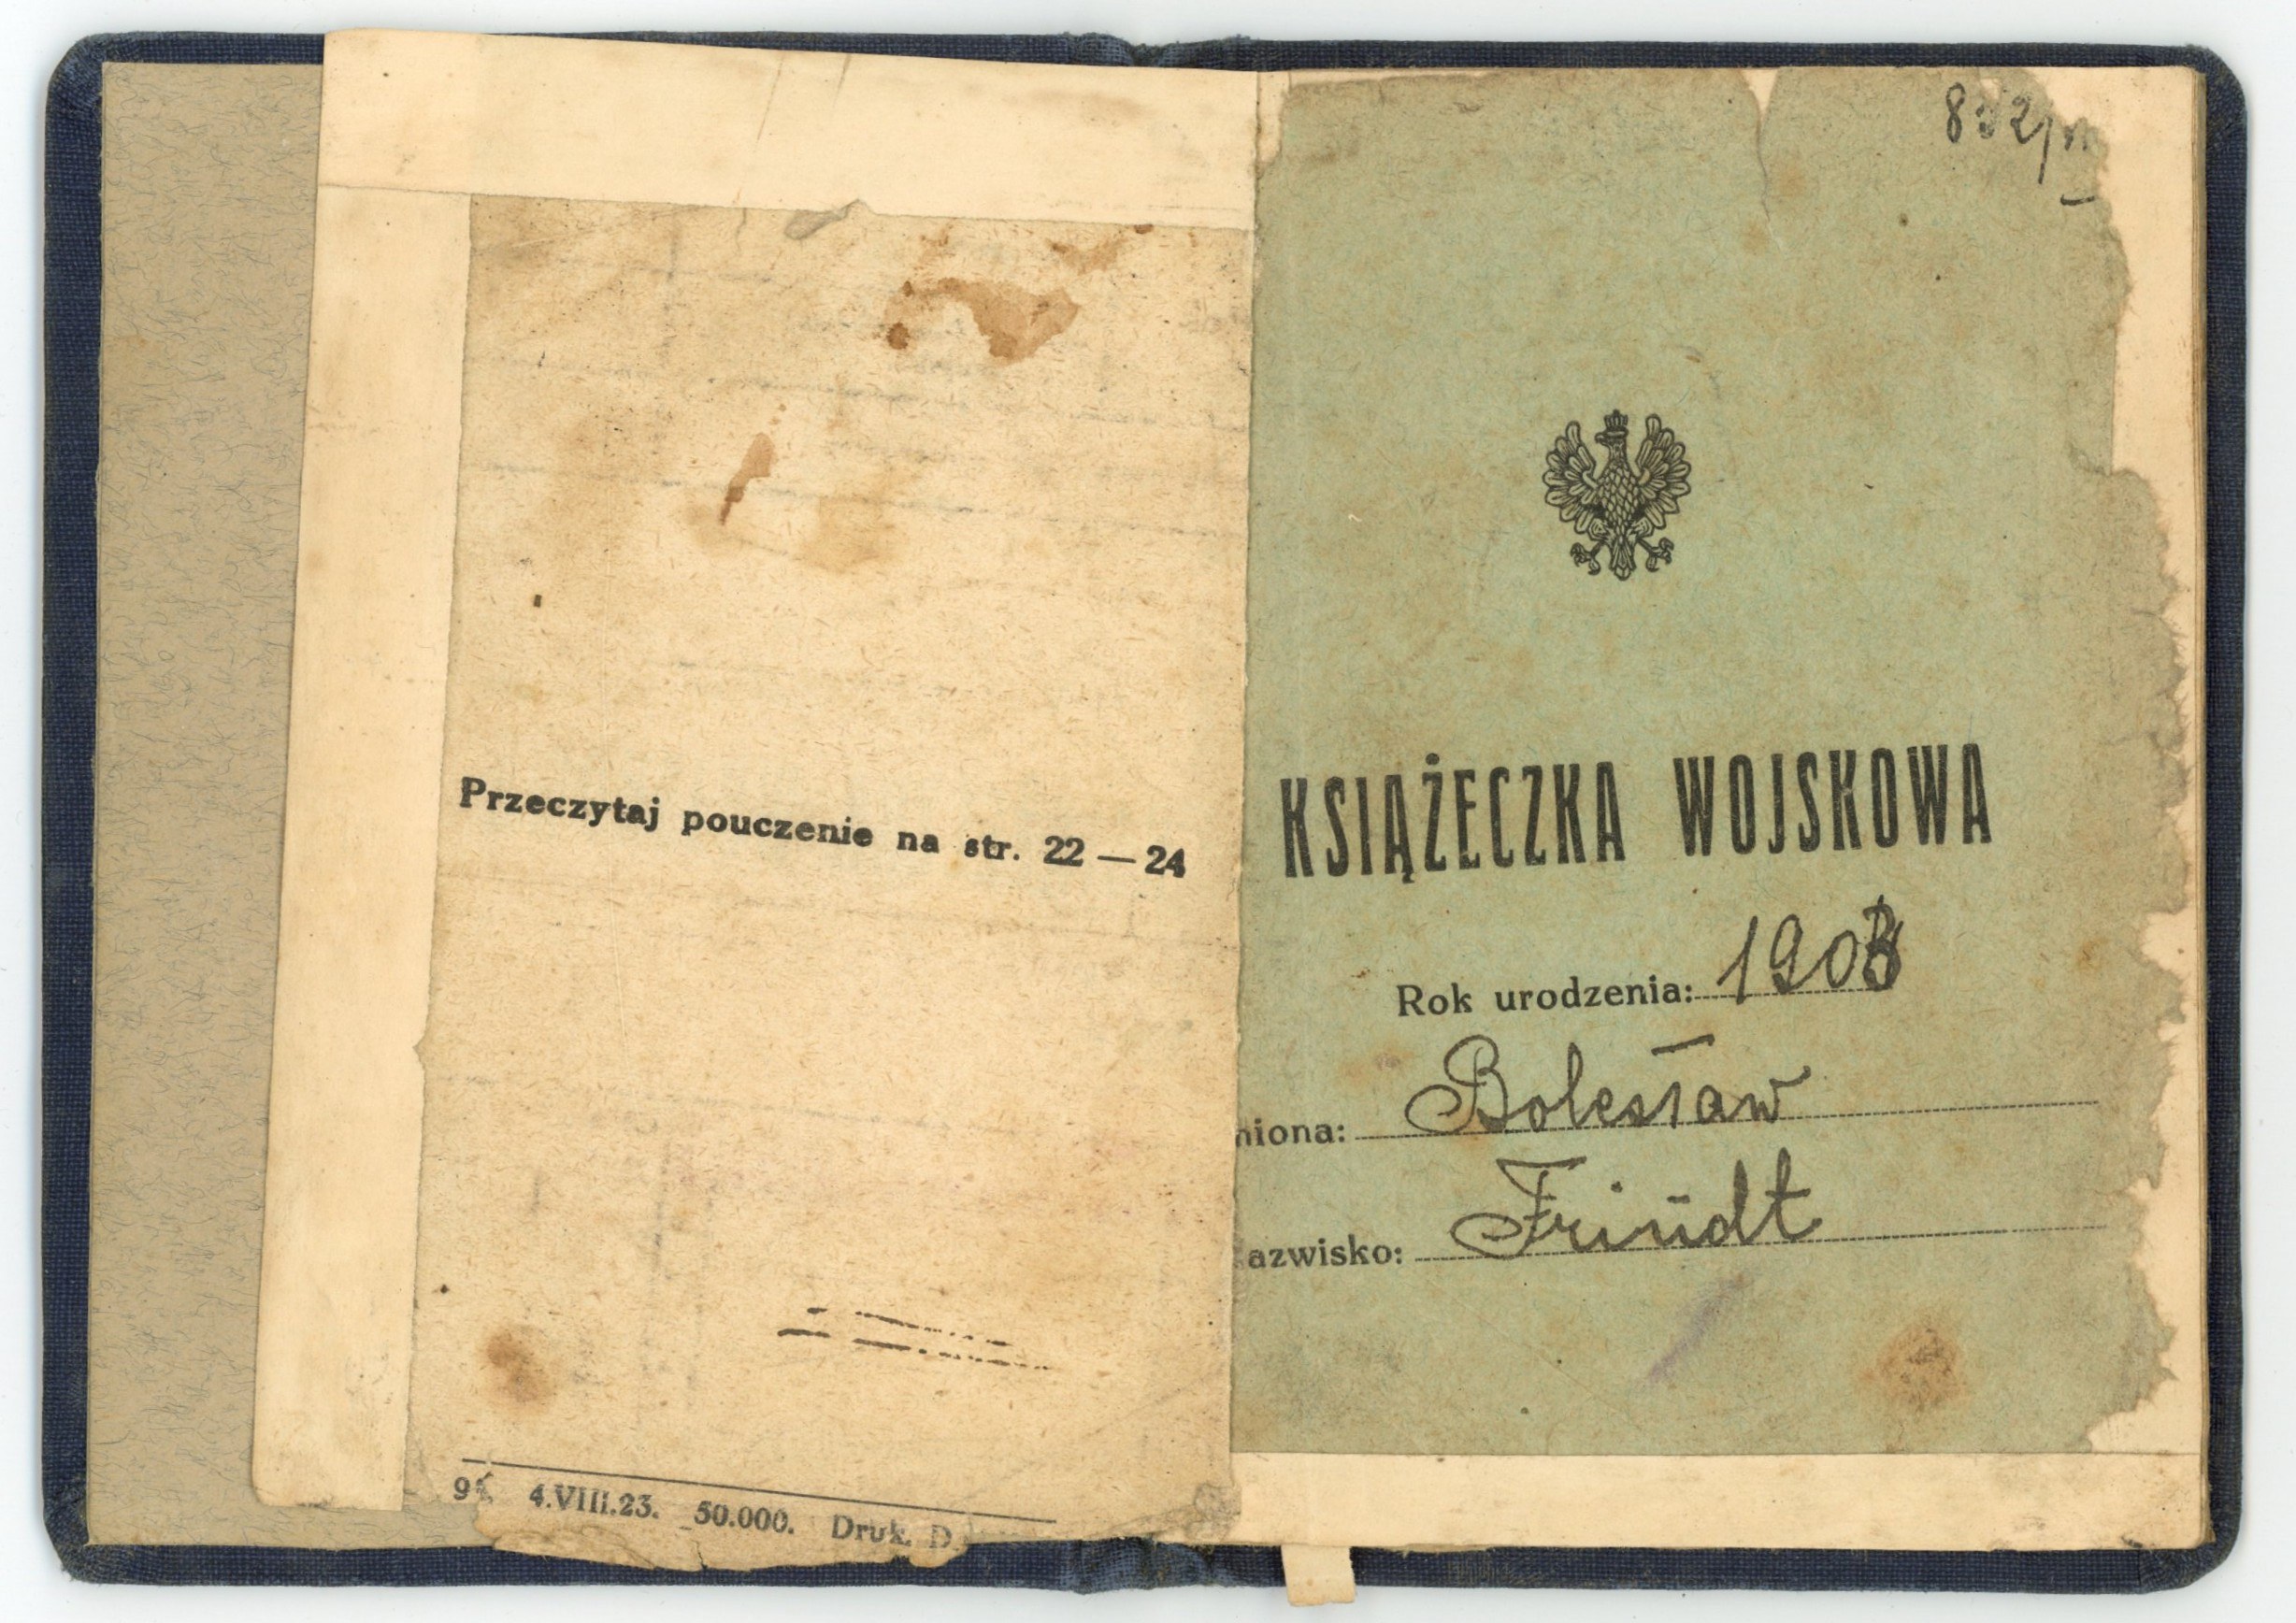 Przeczytaj pouczenie na str. 22 — 24
4.VIII.23. 50.000. Druk. D.
KSIĄŻECZKA WOJSKOWA
Rok urodzenia: 1903
miona: Bolesław
azwisko: Frindt